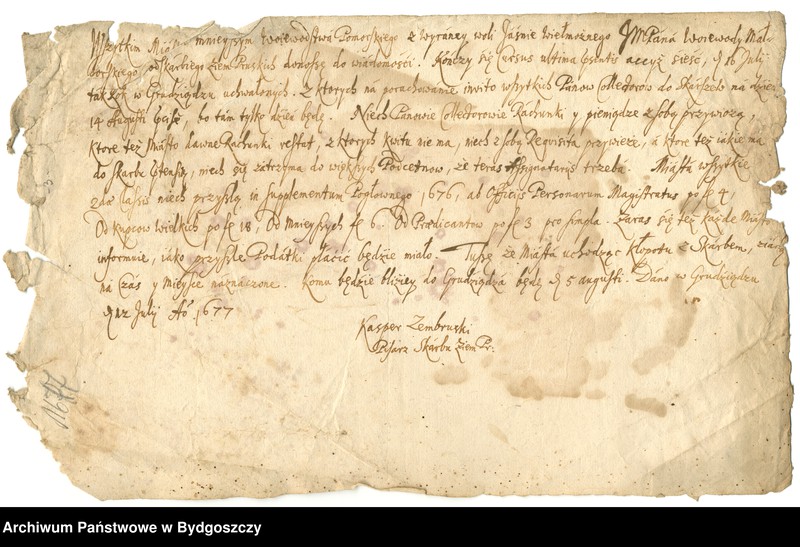 Wszytkim Miastom mnieyszym Woiewodstwa Pomorskiego z wyrazney woli Jasnie Wielmoznego JMPana Woiewody Mal-
borskiego, Skarbiego Ziem Pruskich donoszę do wiadomosci. Konczy się Cursus ultima accyz sześć, d 16 Julij
tak w Grudziądzu uchwalonych. Z ktorych na porachowanie invito wszytkich Panow Collectorow do Skarszew na dzień
14 Augusti bo tam tylko dzień będę. Niech Panowie Collectorowie Rachunki y pieniądze z sobą przywiozą,
ktore też Miasto dawne Rachunki restat, z ktorych kwitu nie ma, niech z sobą Requisita przywieze, a ktore też iakie ma
do Skarbu niech się zatrzyma do większych że teras Assignatariis trzeba. Miasta wszytkie
niech przyszlą in Supplementum Poglownego 1676, ab Officiis Personarum Magistratus po fl 4
Od kupcow wielkich po fl 18, Od mnieyszych fl 6. Od Prædicantow po fl 3 pro simpla. Zaras się też każde Miasto
informuie, iako przyszle Podatki płacić będzie miało. Tuszę że Miasta uchodząc kłopotu z Skarbem,
na czas y mieysce naznaczone. Komu będzie bliżey do Grudziądza będę d 5 augusti. Dano w Grudziądzu
d 12 Julij Ao 1677
Kasper Zembruski
Pisarz Skarbu Ziem Pr:
1677
Archiwum Państwowe w Bydgoszczy